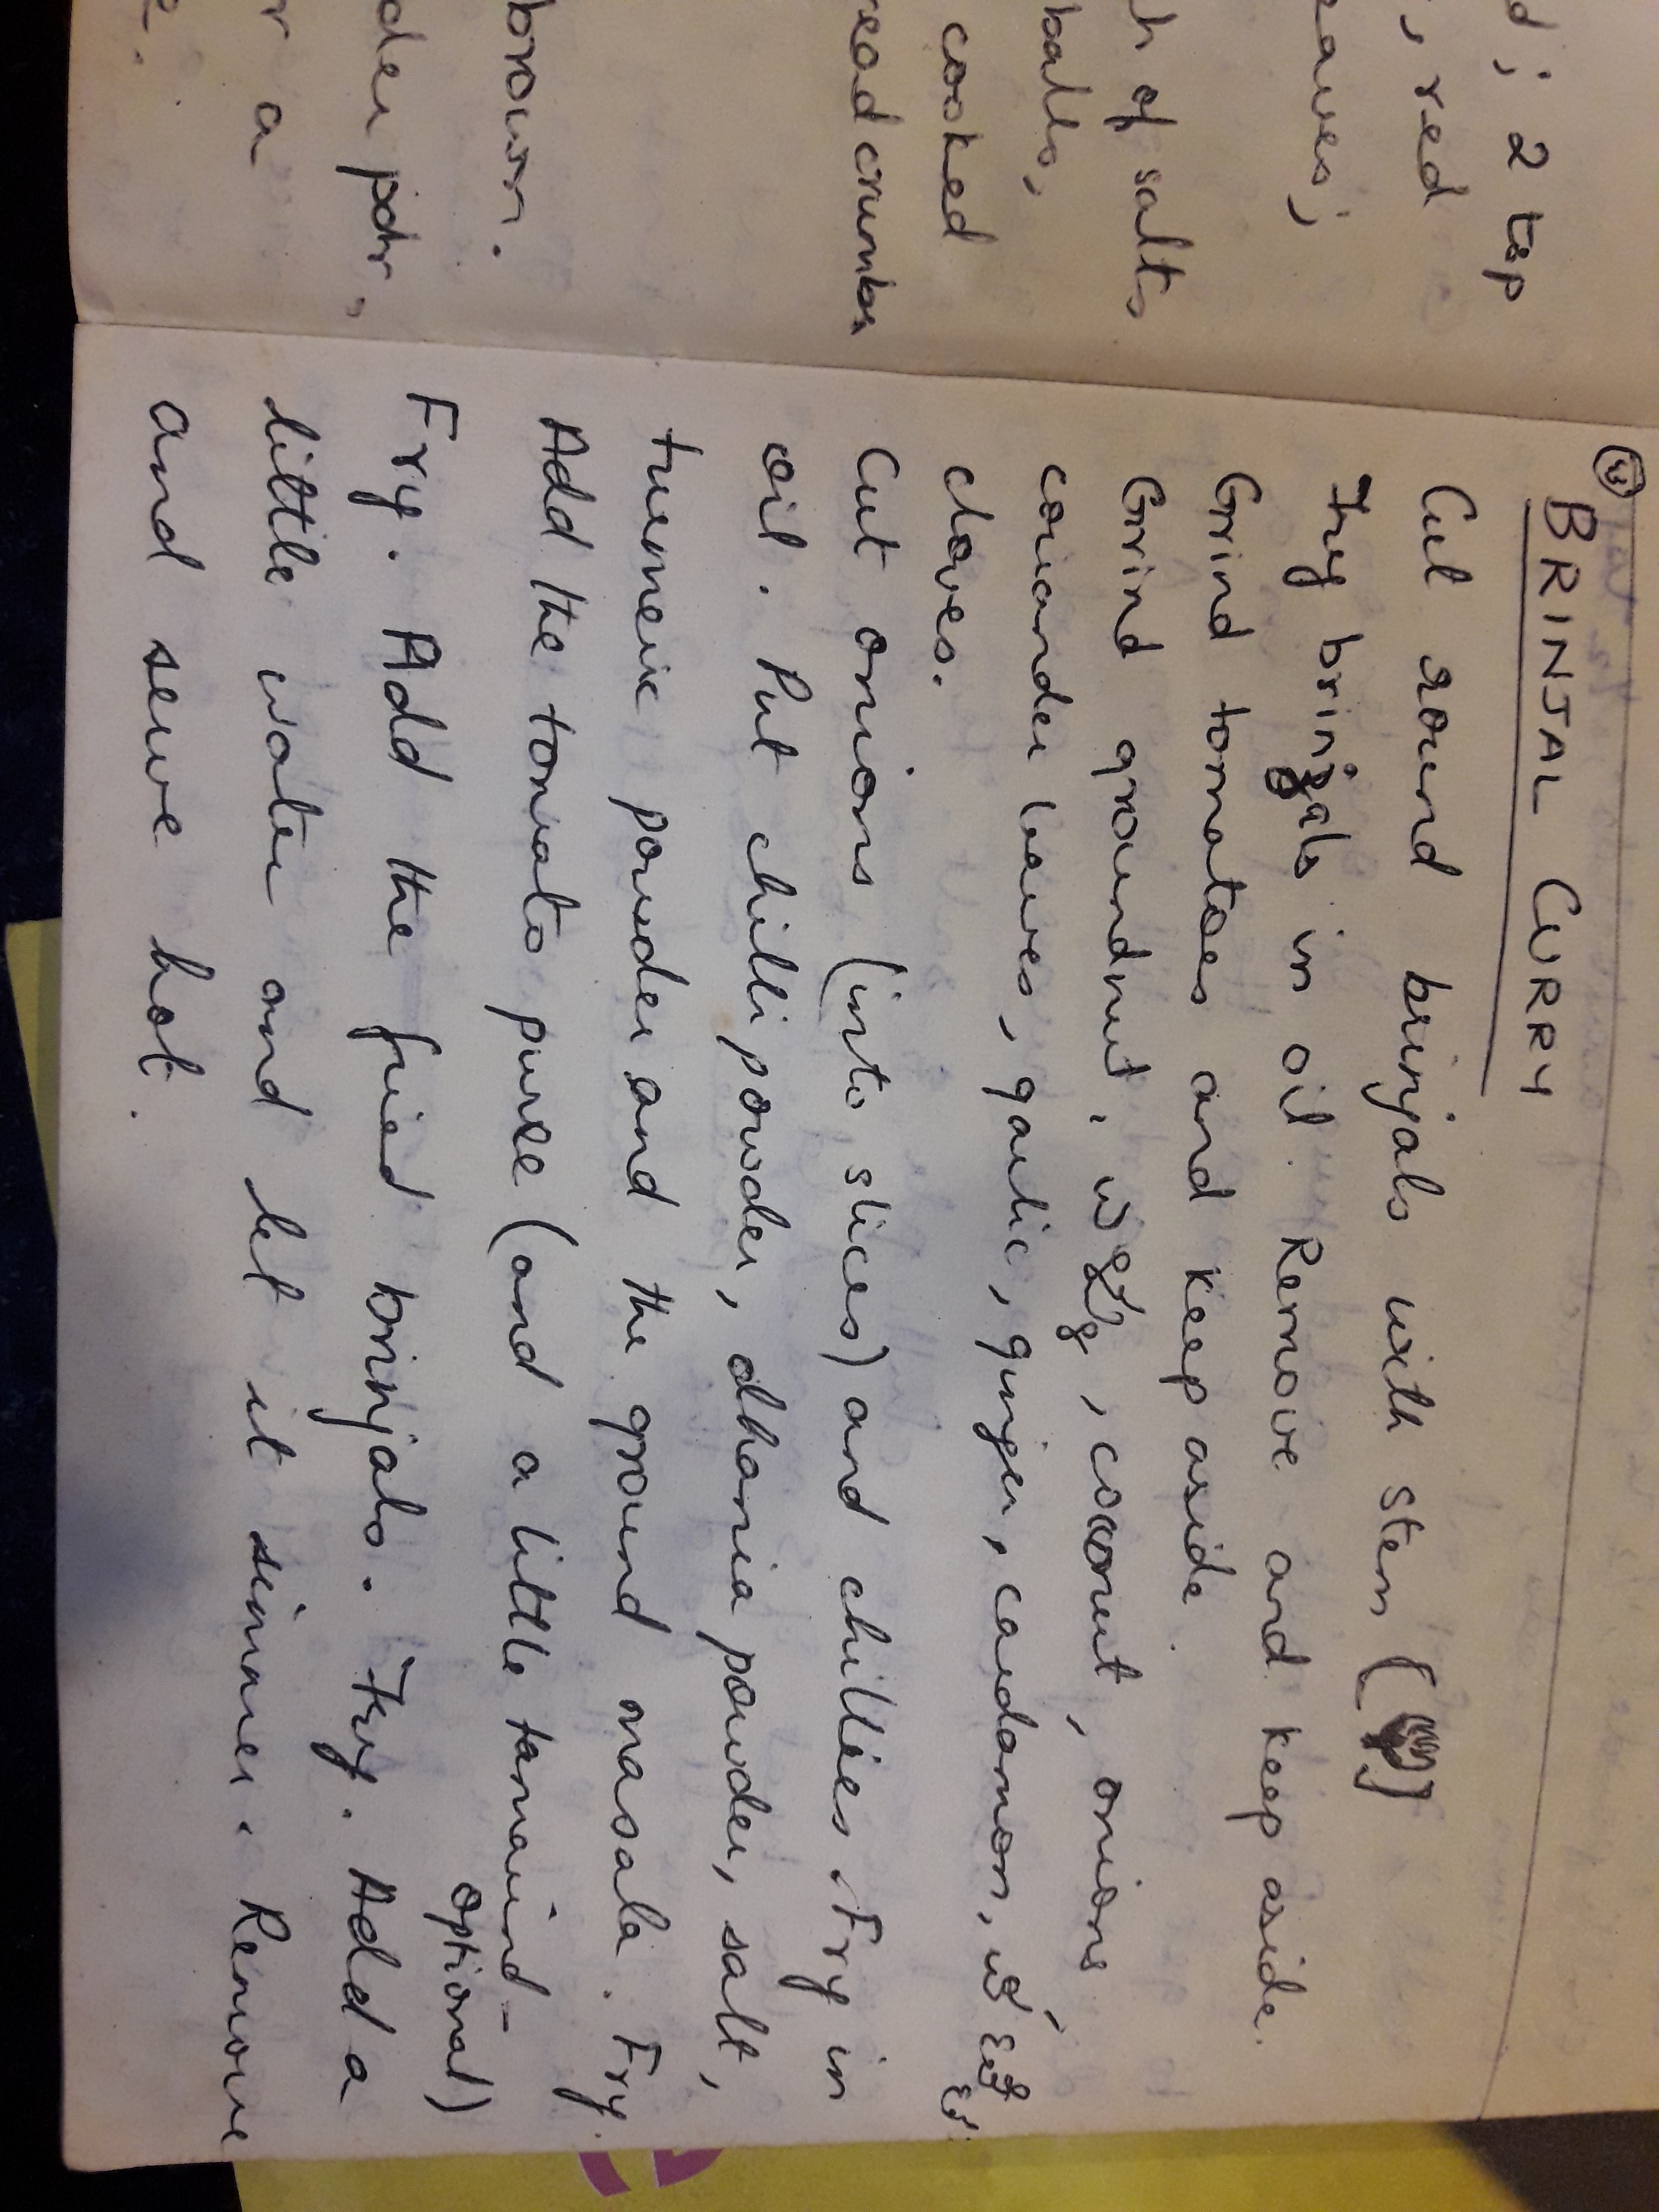 d; 2 tsp
, red
eaves;
h of salt,
balls,
cooked
read crumbs
brown.
der pdr,
r a
e.
BRINJAL CURRY
Cut round brinjals with stem (
Fry brinjals in oil. Remove and keep aside.
Grind tomatoes and keep aside.
Grind groundnut, , coconut, onions,
coriander leaves, garlic, ginger, cardamon,
cloves.
Cut onions (into slices) and chillies. Fry in
oil. Put chilli powder, dhania powder, salt,
turmeric powder and the ground masala. Fry.
Add the tomato puree (and a little tamarind -
optional)
Fry. Add the fried brinjals. Fry. Add a
little water and let it simmer. Remove
and serve hot.